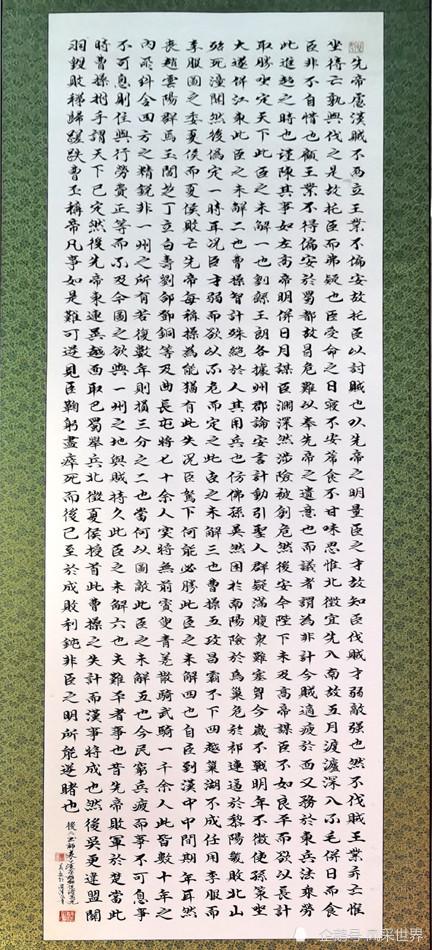 先帝慮漢賊不兩立王業不偏安故托臣以討賊也以先帝之明量臣之才故知臣伐賊才弱敵强也然不伐賊王業亦亡惟
坐待亡孰與伐之是故托臣而弗疑也臣受命之日寢不安蓆食不甘味思惟北徵宜先入南故五月渡瀘深入不毛併日而食
臣非不自惜也顧王業不得偏安於蜀都故冒危難以奉先帝之遺意也而議者謂為非計今賊適疲於西又務於東兵法乘勞
此進趨之時也謹陳其事如左高帝明併日月謀臣淵深然涉險被創危然後安今陛下未及高帝謀臣不如良平而欲以長計
取勝坐定天下此臣之未解一也劉繇王朗各據州郡論安言計動引聖人群疑滿腹衆難塞胸今歲不戰明年不徵使孫策坐
大遂併江東此臣之未解二也曹操智計殊絕於人其用兵也仿佛孫吳然困於南陽險於烏巢危於祁連逼於黎陽幾敗北山
殆死潼關然後偽定一時耳况臣才弱而欲以不危而定之此臣之未解三也曹操五攻昌霸不下四越巢湖不成任用李服而
李服圖之委夏侯而夏侯敗亡先帝每稱操為能猶有此失况臣駑下何能必勝此臣之未解四也自臣到漢中中間期年耳然
喪趙雲陽群馬玉閻芝丁立白壽劉郃鄧銅等及曲長屯將七十余人突將無前賨叟青羌散騎武騎一千余人此皆數十年之
內所糾合四方之精銳非一州之所有若復數年則損三分之二也當何以圖敵此臣之未解五也今民窮兵疲而事不可息事
不可息則住與行勞費正等而不及今圖之欲與一州之地與賊持久此臣之未解六也夫難平者事也昔先帝敗軍於楚當此
時曹操拊手謂天下已定然後先帝東連吳越西取巴蜀舉兵北徵夏侯授首此曹操之失計而漢事將成也然後吳更違盟關
羽毀敗秭歸蹉跌曹丕稱帝凡事如是難可逆見臣鞠躬盡瘁死而後已至於成敗利鈍非臣之明所能逆睹也
企鹅号 风采世界